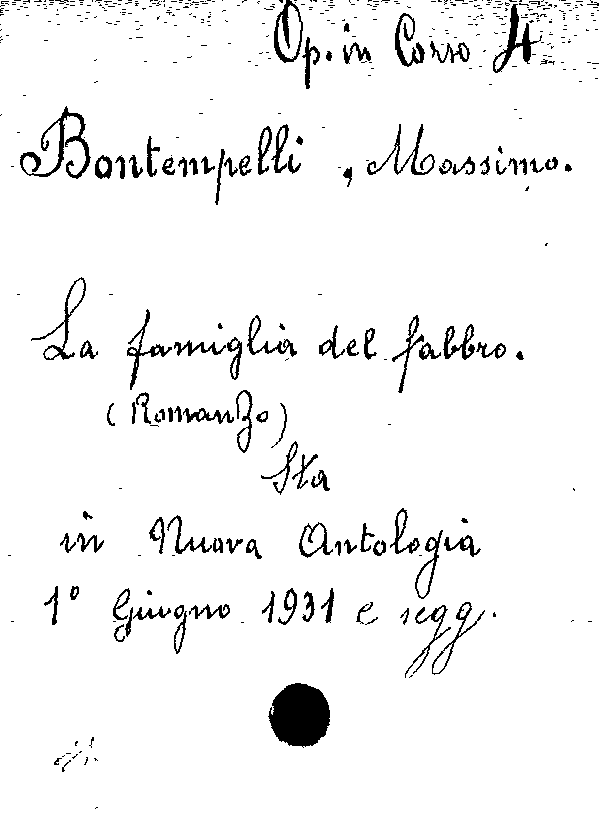 Op. in Corso 4
Bontempelli, Massimo.
La famiglia del fabbro.
(Romanzo)
Sta
in Nuova Antologia
1° Giugno 1931 e segg.